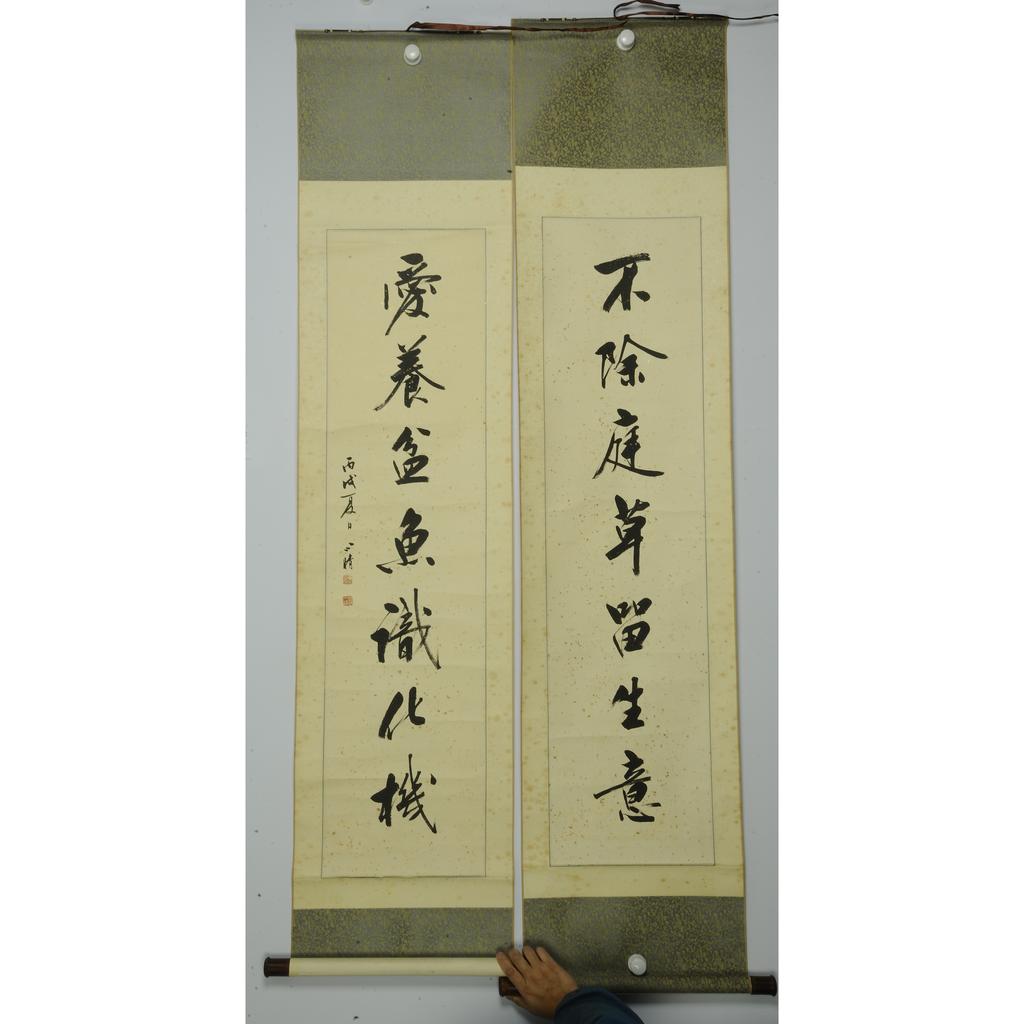 不除庭草留生意
愛養盆魚識化機
丙戌夏日